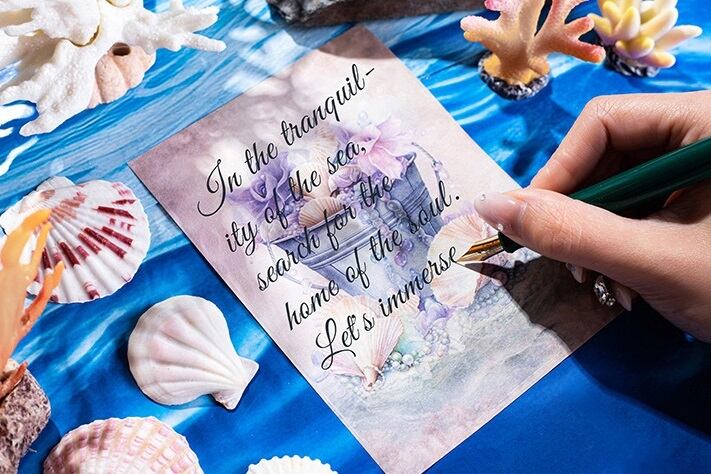 In the tranquil-
ity of the sea,
search for the
home of the soul.
Let's immerse